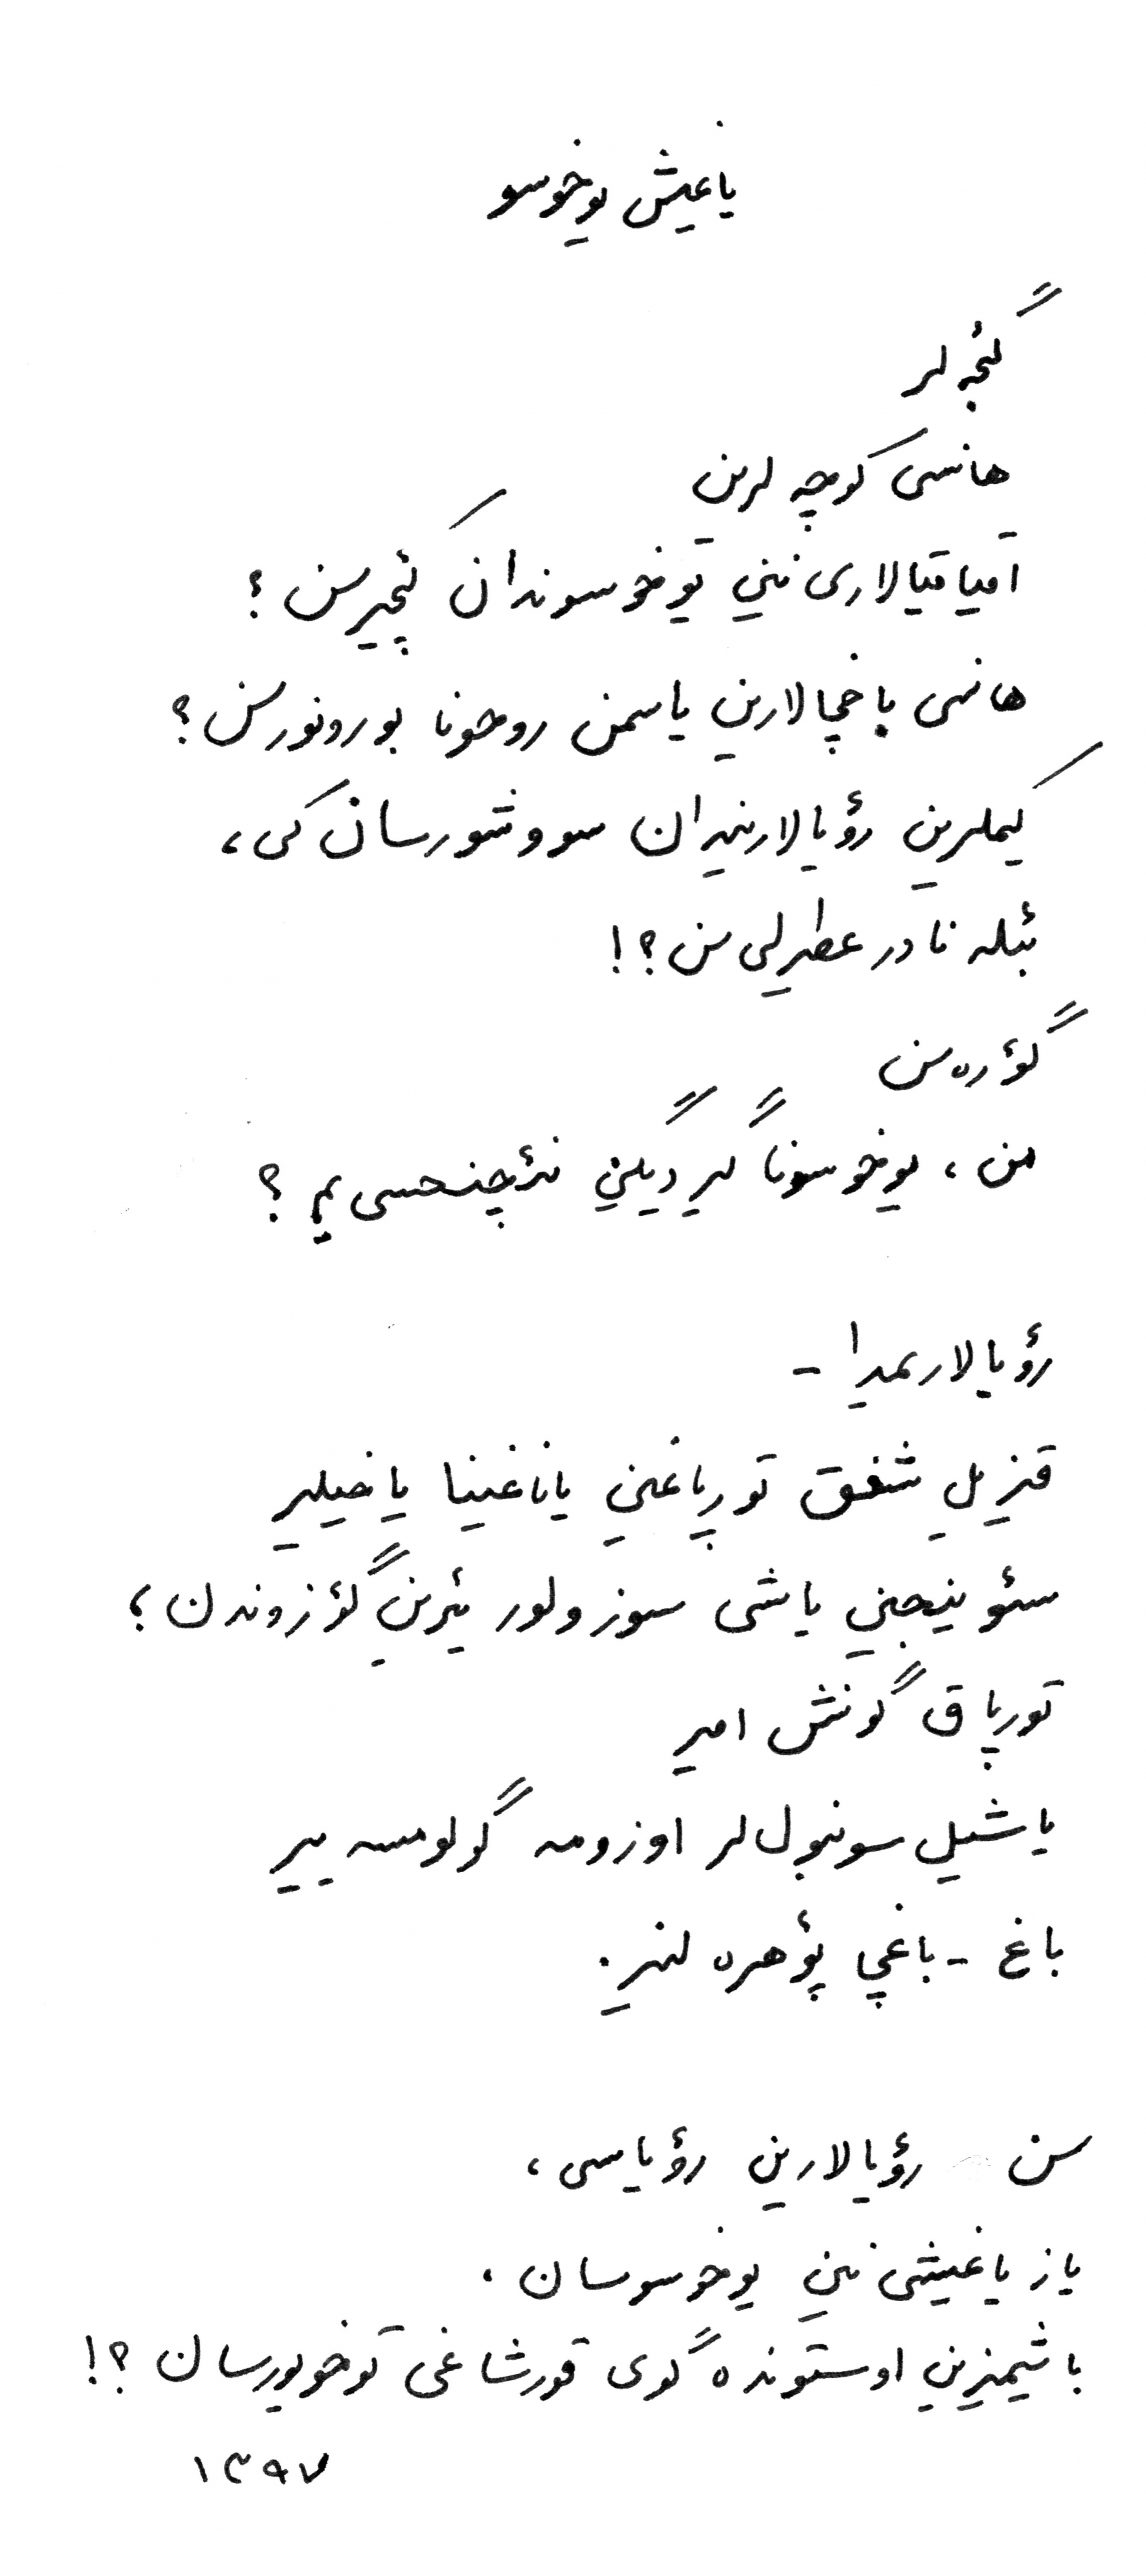 یاغیش یوخوسو
گئجه لر
هانسی کوچه لرین
آقیاقیالاری نین قوخوسوندان کئچیرسن؟
هانسی باخچالارین یاسمن روحونا بورونورسن؟
کیملرین رؤیالاریندان سووشورسان کی،
بئله نادر عطیرلی سن؟!
گؤره سن
من، یوخوسونا گیردیگین نئچنجسی یم؟
رؤیالاریمدا -
قیزیل شفق تورپاغین یاناغینا یاخیلیر
سئوینجین یاشی سوزولور یئرین گؤزوندن؛
تورپاق گونش امیر
یاشیل سونبول لر اوزومه گولومسه ییر
باغ - باغچا پؤهره لنیر.
سن رؤیالارین رؤیاسی،
یاز یاغیشی نین یوخوسوسان.
باشیمیزین اوستونده گوی قورشاغی توخویورسان؟!
۱۳۹۷